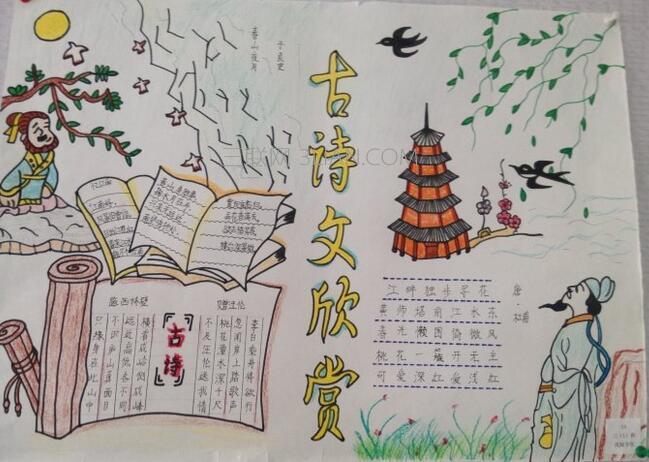 春山夜月
于良史
古诗文欣赏
忆江南
江南好
题西林壁
横看成岭侧成峰
远近高低各不同
不识庐山真面目
只缘身在此山中
古诗
赠汪伦
李白乘舟将欲行
忽闻岸上踏歌声
桃花潭水深千尺
不及汪伦送我情
江畔独步寻花
唐·杜甫
黄师塔前江水东
春光懒困倚微风
桃花一簇开无主
可爱深红爱浅红
三联网 3LIAN.COM